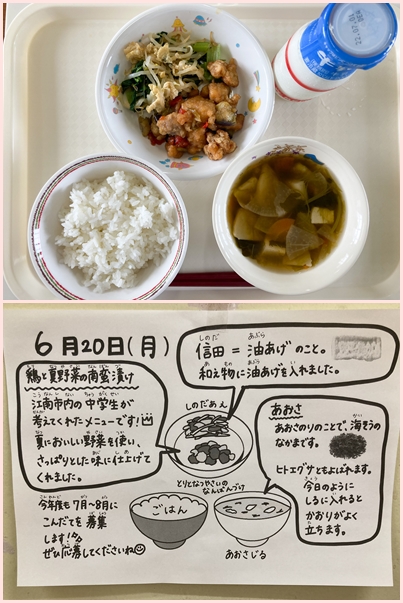 6月20日(月)
しのだ あぶら
信田=油あげのこと。
あ もの あぶら い
和え物に油あげを入れました。
鶏と夏野菜の南蛮漬け
こうなんしない ちゅうがくせい
江南市内の中学生が
かんが
考えてくれたメニューです!
夏においしい野菜を使い、
さっぱりとした味に仕上げて
くれました。
今年度も7月〜8月に
こんだてを募集
します!
ぜひ応募してくださいね
しのだあえ
とりとなつやさいの
なんばんづけ
ごはん
あおさじる
あおさ
あおさのりのことで、海そうの
なかまです。
ヒトエグサともよばれます。
今日のように
しるに入れると
かおりがよく
立ちます。